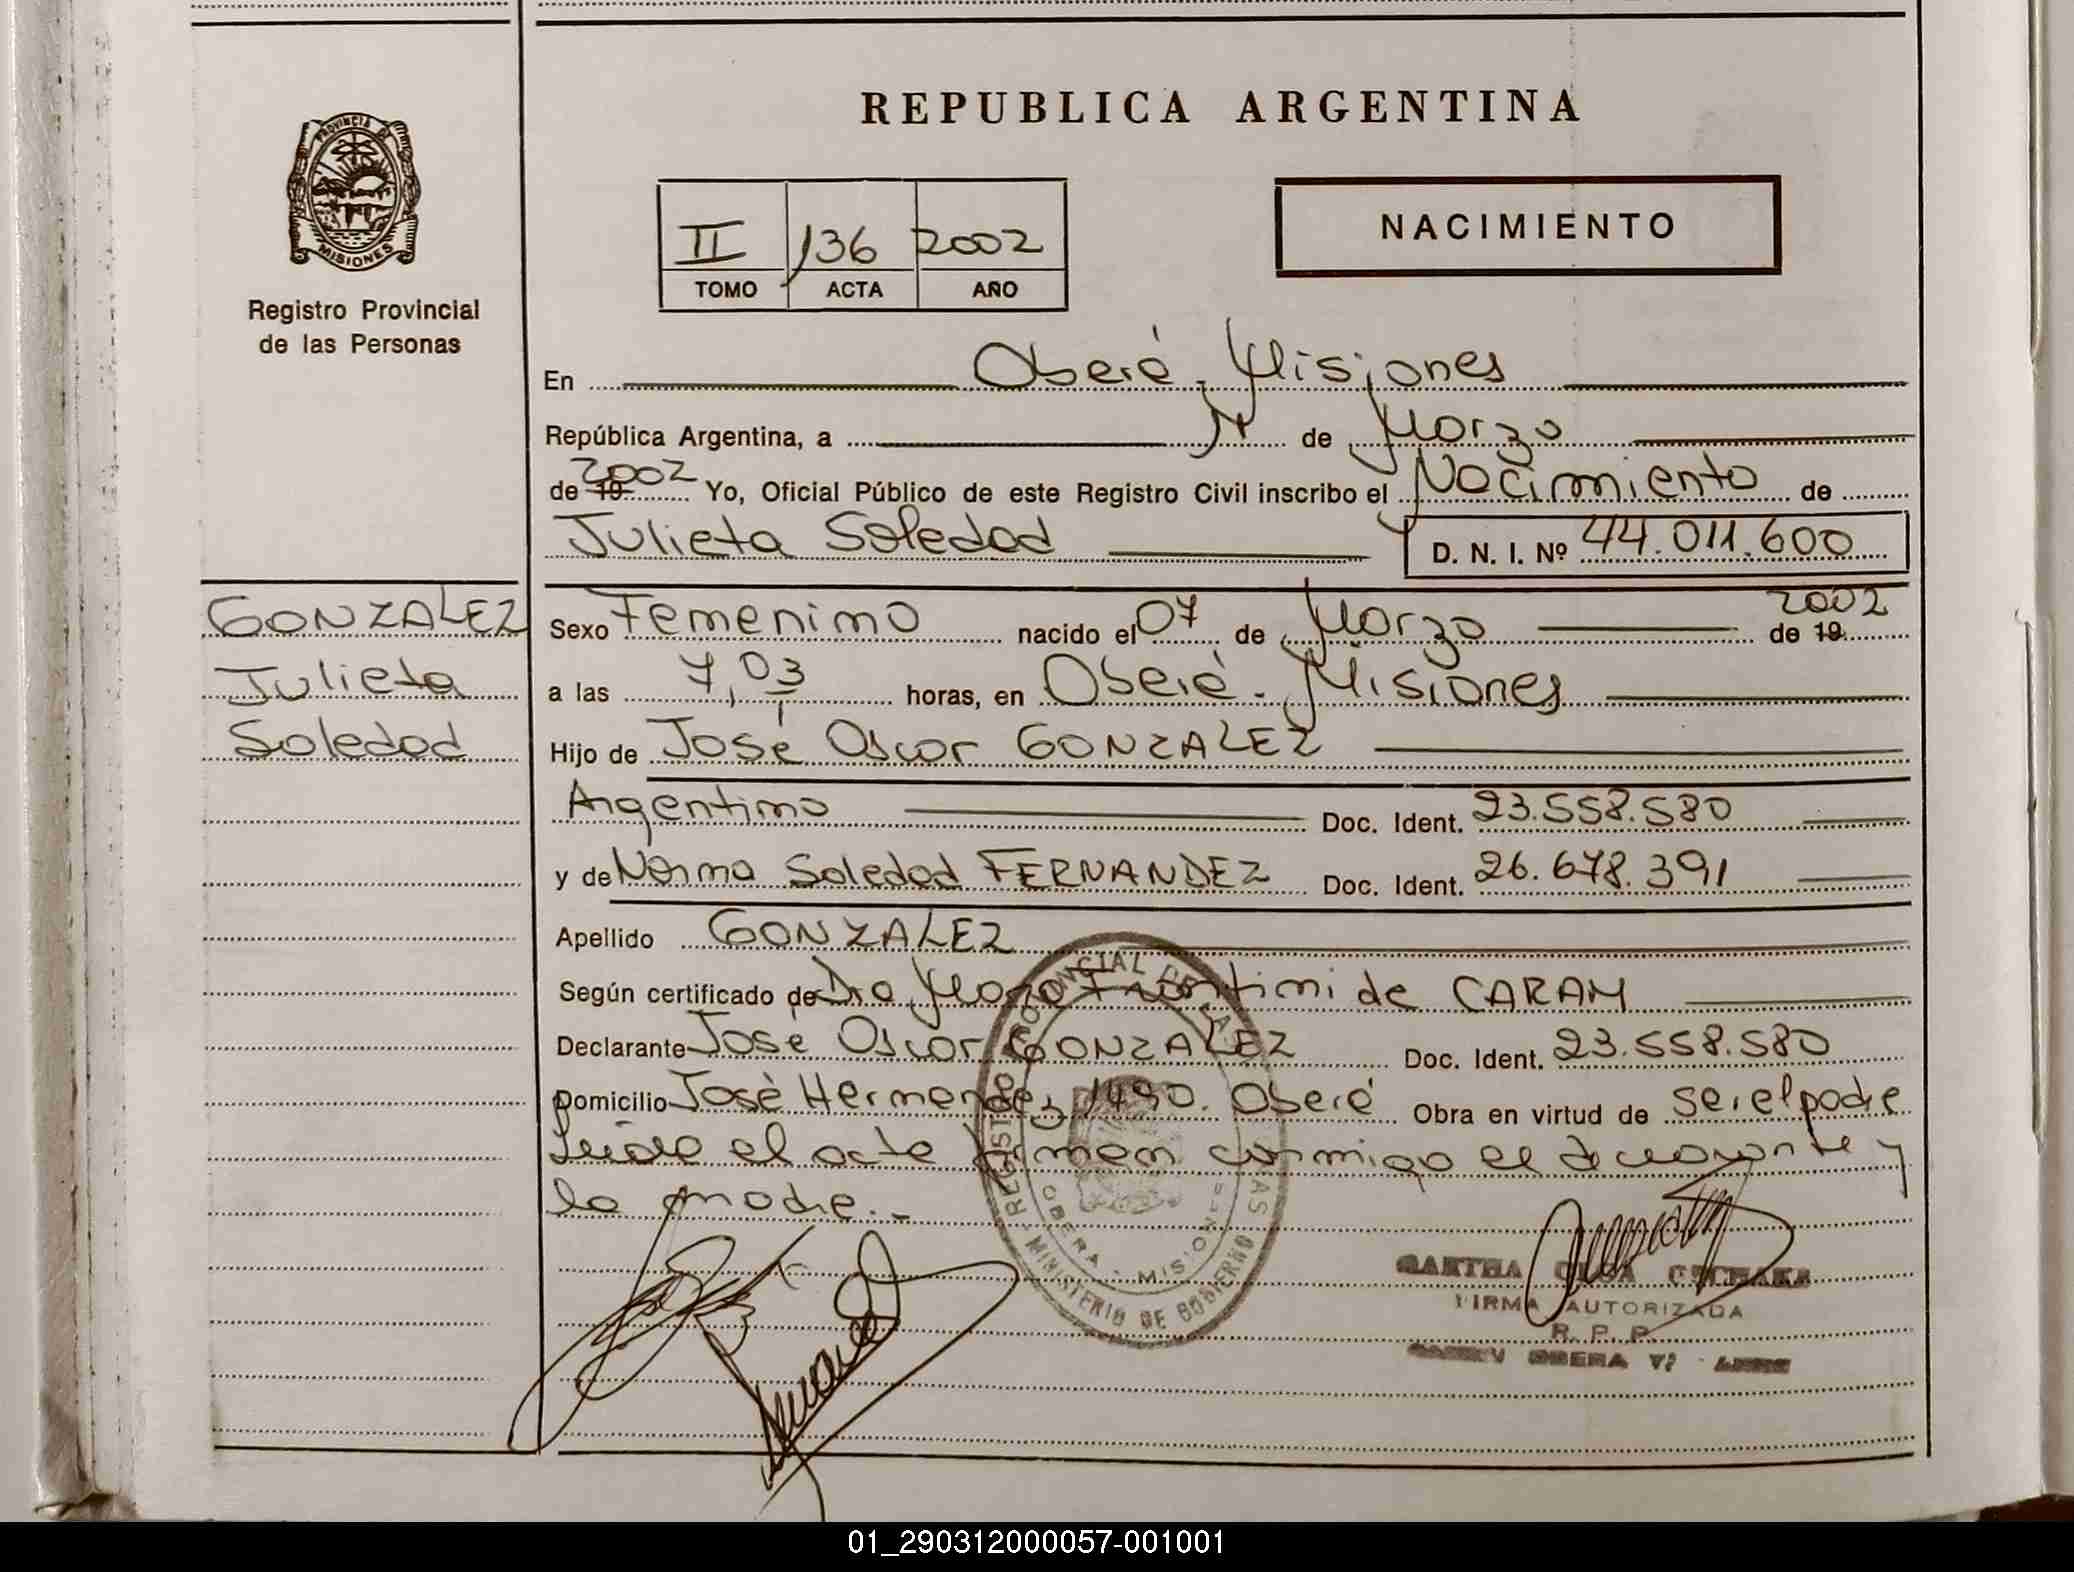 REPUBLICA ARGENTINA
PROVINCIA DE
MISIONES
Registro Provincial
de las Personas
II 136 2002
TOMO ACTA AÑO
NACIMIENTO
En Oberá, Misiones
República Argentina, a de Marzo
de 19 2002 Yo, Oficial Público de este Registro Civil inscribo el Nacimiento de
Julieta Soledad D. N. I. Nº 44.011.600
GONZALEZ
Julieta
Soledad
Sexo Femenino nacido el 07 de Marzo de 19 2002
a las 7,03 horas, en Oberá - Misiones
Hijo de José Oscar GONZALEZ
Argentino Doc. Ident. 23.558.580
y de Norma Soledad FERNANDEZ Doc. Ident. 26.678.391
Apellido GONZALEZ
Según certificado de Dra de CARAM
Declarante José Oscar GONZALEZ Doc. Ident. 23.558.580
Domicilio José Hernandez 1490. Oberá Obra en virtud de ser el padre
Leída el acta firman conmigo el declarante y
la madre.-
REGISTRO PROVINCIAL DE LAS
OBERA - MISIONES
MINISTERIO DE GOBIERNO
OLGA
FIRMA AUTORIZADA
R. P. P.
OBERA
01_290312000057-001001